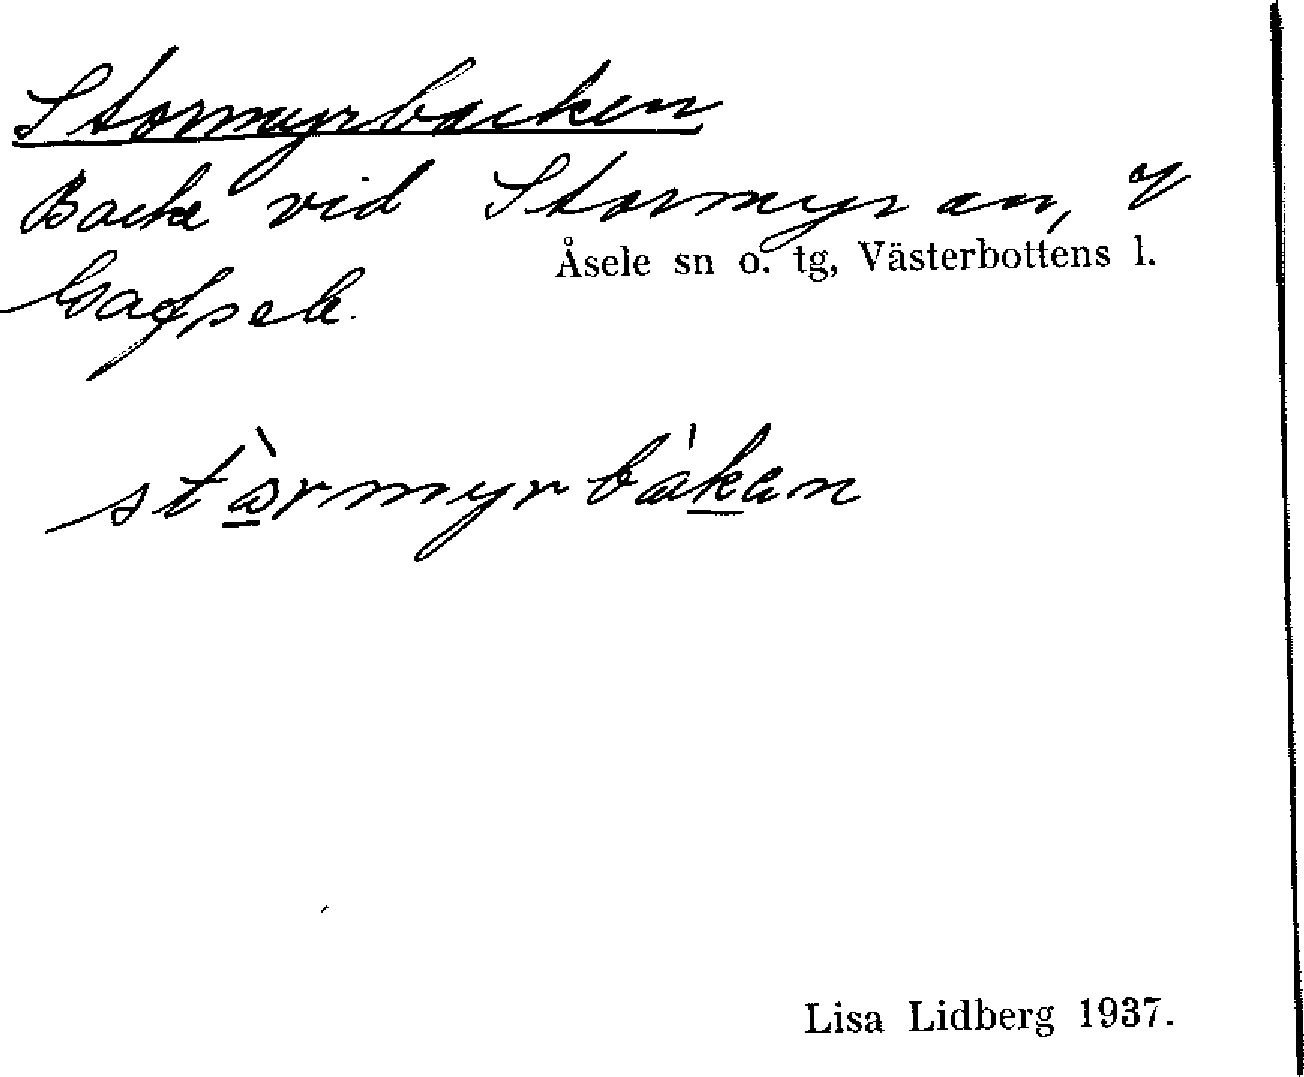 Stormyrbacken
Backe vid Stormyran, v
Åsele sn o. tg, Västerbottens l.
Gafsele.
stòrmyrbákan
Lisa Lidberg 1937.